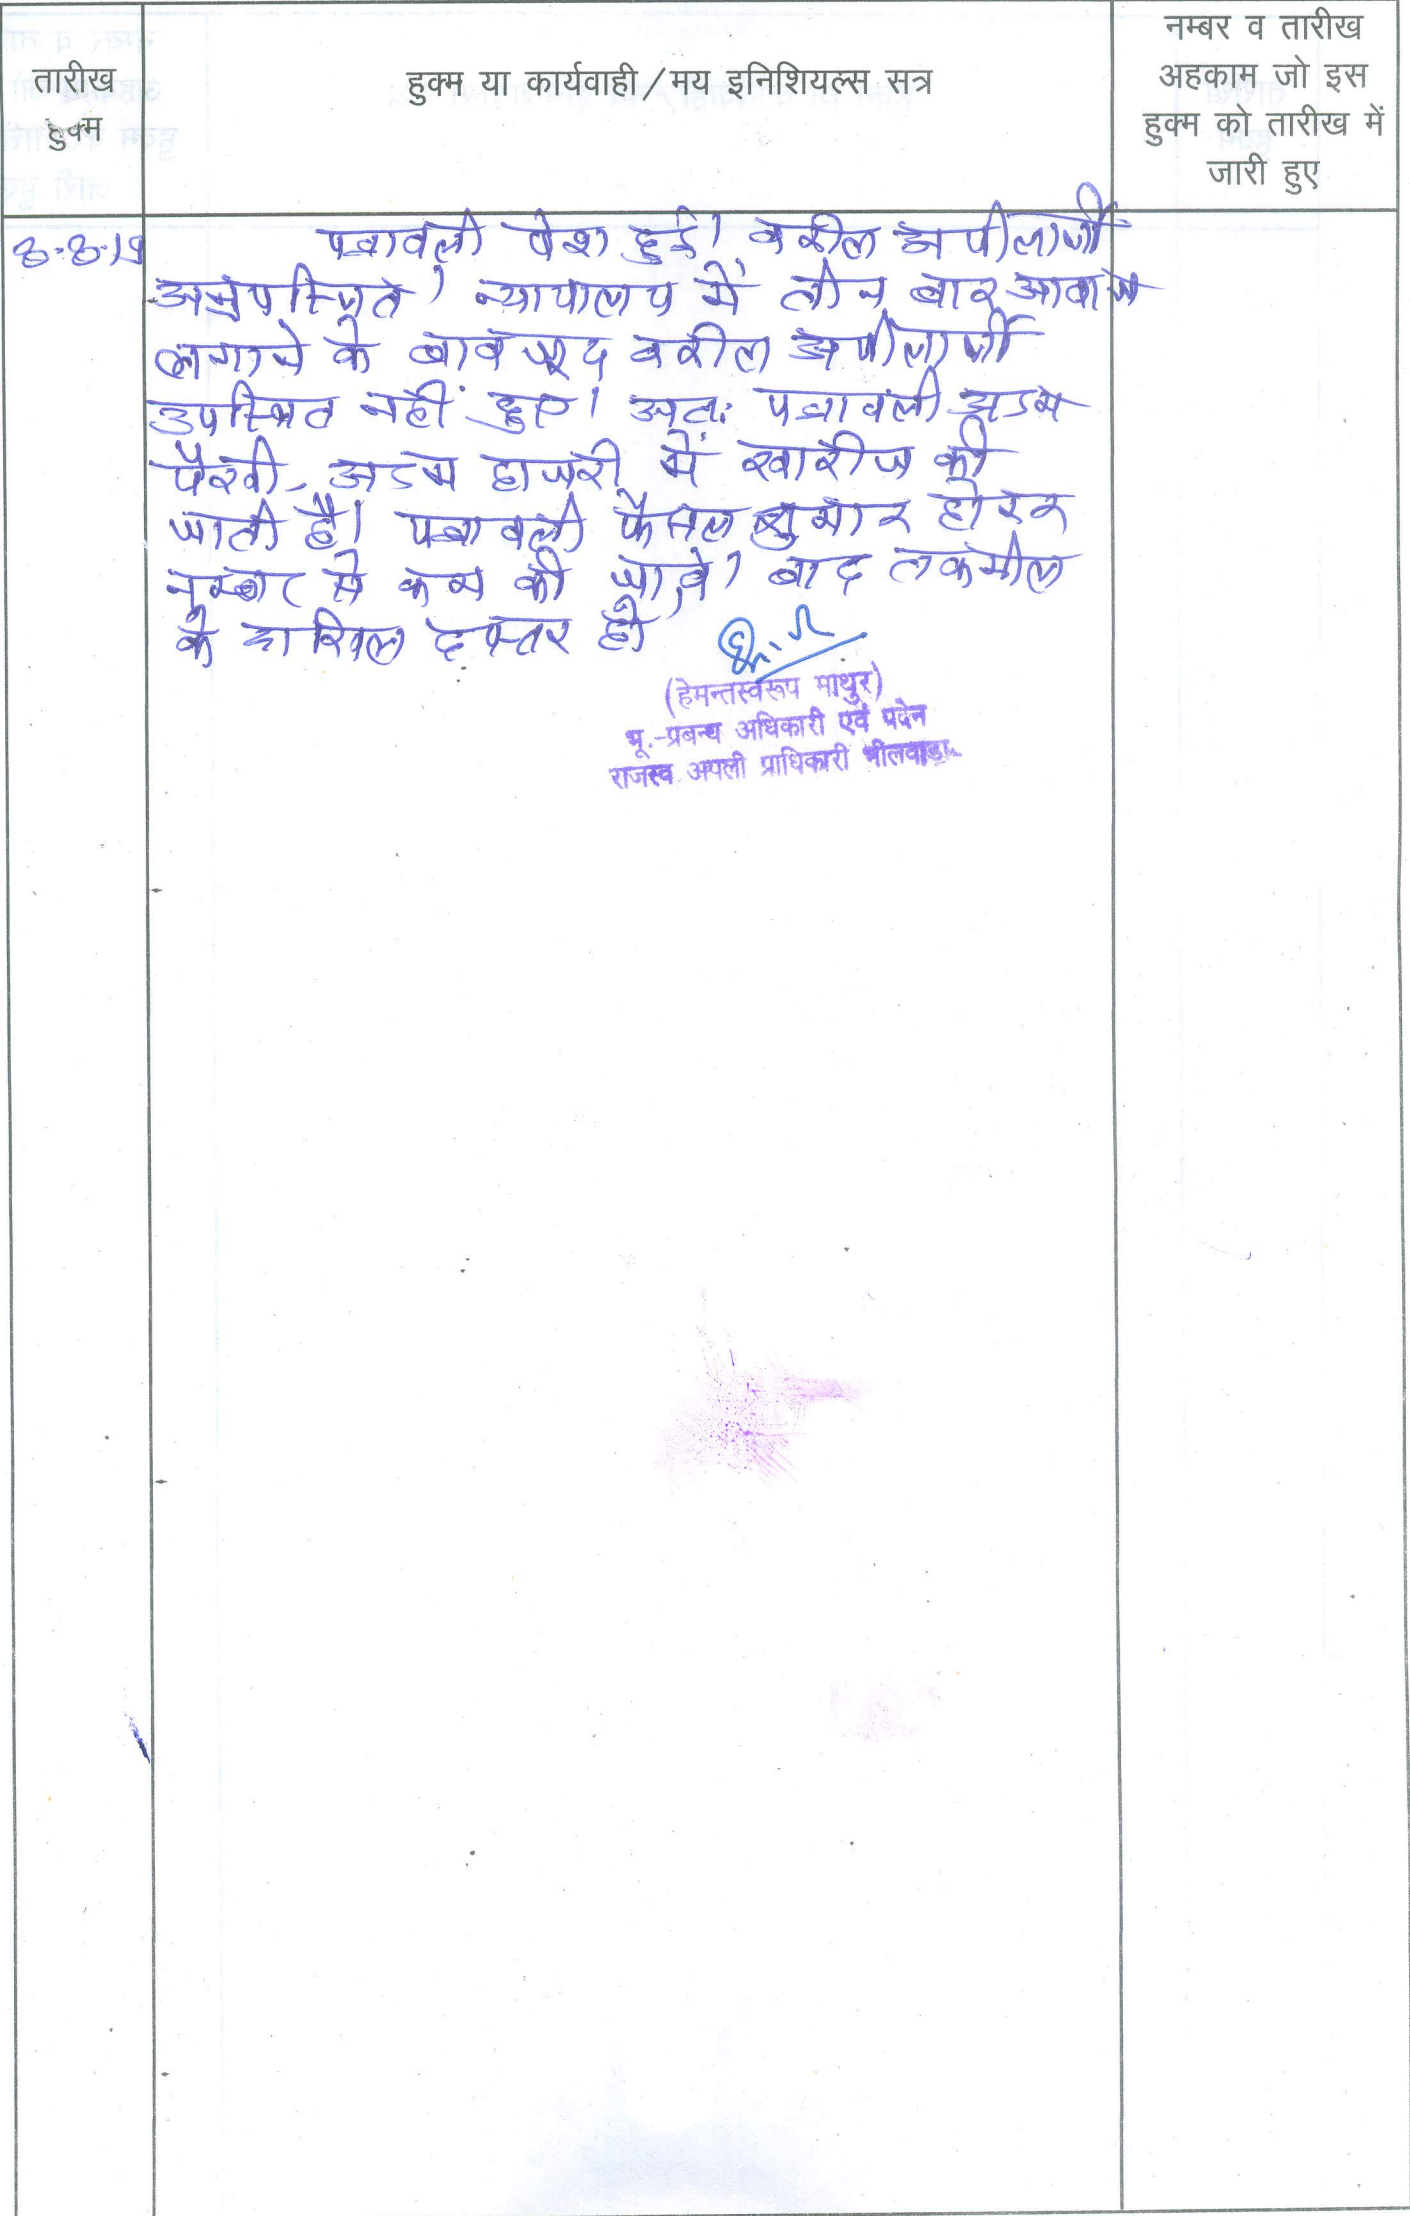 तारीख
हुक्म
हुक्म या कार्यवाही/मय इनिशियल्स सत्र
नम्बर व तारीख
अहकाम जो इस
हुक्म को तारीख में
जारी हुए
8-8-19
पत्रावली पेश हुई। वकील अपीलार्थी
अनुपस्थित। न्यायालय में तीन बार आवाज
लगाने के बावजूद वकील अपीलार्थी
उपस्थित नहीं हुए। अतः पत्रावली अदम
पैरवी- अदम हाजरी में खारीज की
जाती है। पत्रावली फैसल शुमार होकर
नम्बर से कम की जावे। बाद तकमील
के दाखिल दफ्तर हो
(हेमन्तस्वरूप माथुर)
भू.-प्रबन्ध अधिकारी एवं पदेन
राजस्व अपली प्राधिकारी भीलवाड़ा